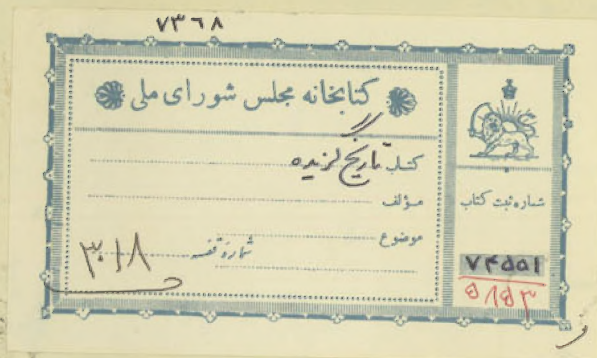 ۷۳۶۸
کتابخانه مجلس شورای ملی
کتاب تاریخ گزیده
مؤلف
موضوع
شماره قفسه ۳۰۱۸
شماره ثبت کتاب
۷۴۵۵۱
۵۱۵۳